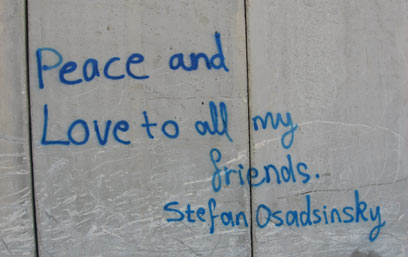 Peace and
Love to all my
friends.
Stefan Osadsinsky